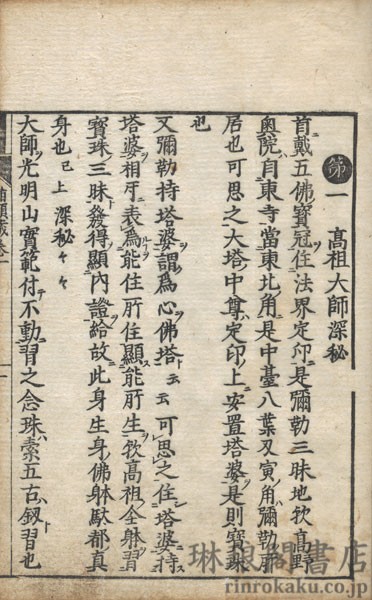 第一 高祖大師深秘
首戴五佛寶冠住法界定印是彌勒三昧地欤高野
奥院自東寺當東北角是中臺八葉丑寅角彌勒所
居也可思之大塔中尊定印上安置塔婆是則寶珠
也
又彌勒持塔婆謂爲心佛塔云云可思之住塔婆持
塔婆相牙表爲能住所住顯能所生欤高祖全躰習
寶珠三昧發得顯内證給故此身生身佛躰馱都真
身也已上深秘々々
大師光明山實範付不動習之念珠索五古釼習也
琳琅閣書店
rinrokaku.co.jp